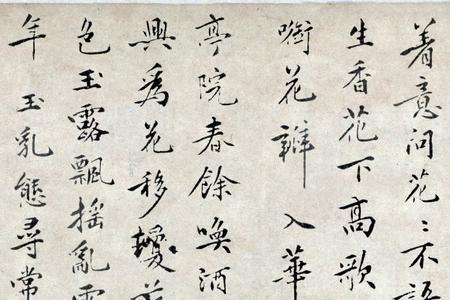 着意問花〻不語
生香花下高歌
啣花瓣入華
亭院春餘喚酒
興爲花移
色玉露飄摇亂
年玉乳態尋常